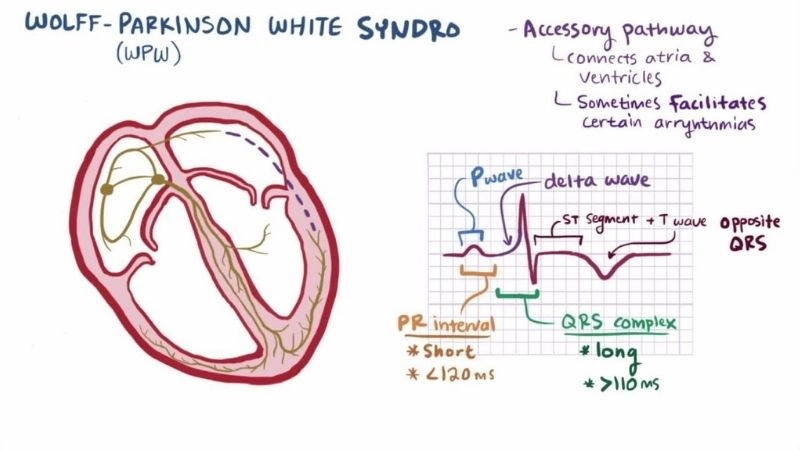 WOLFF-PARKINSON WHITE SYNDRO
(WPW)
- Accessory pathway
connects atria &
ventricles
Sometimes facilitates
certain arryntnmias
P wave
delta wave
ST segment + T wave
opposite
QRS
PR interval
* Short
* <120 ms
QRS complex
* long
* >110 ms